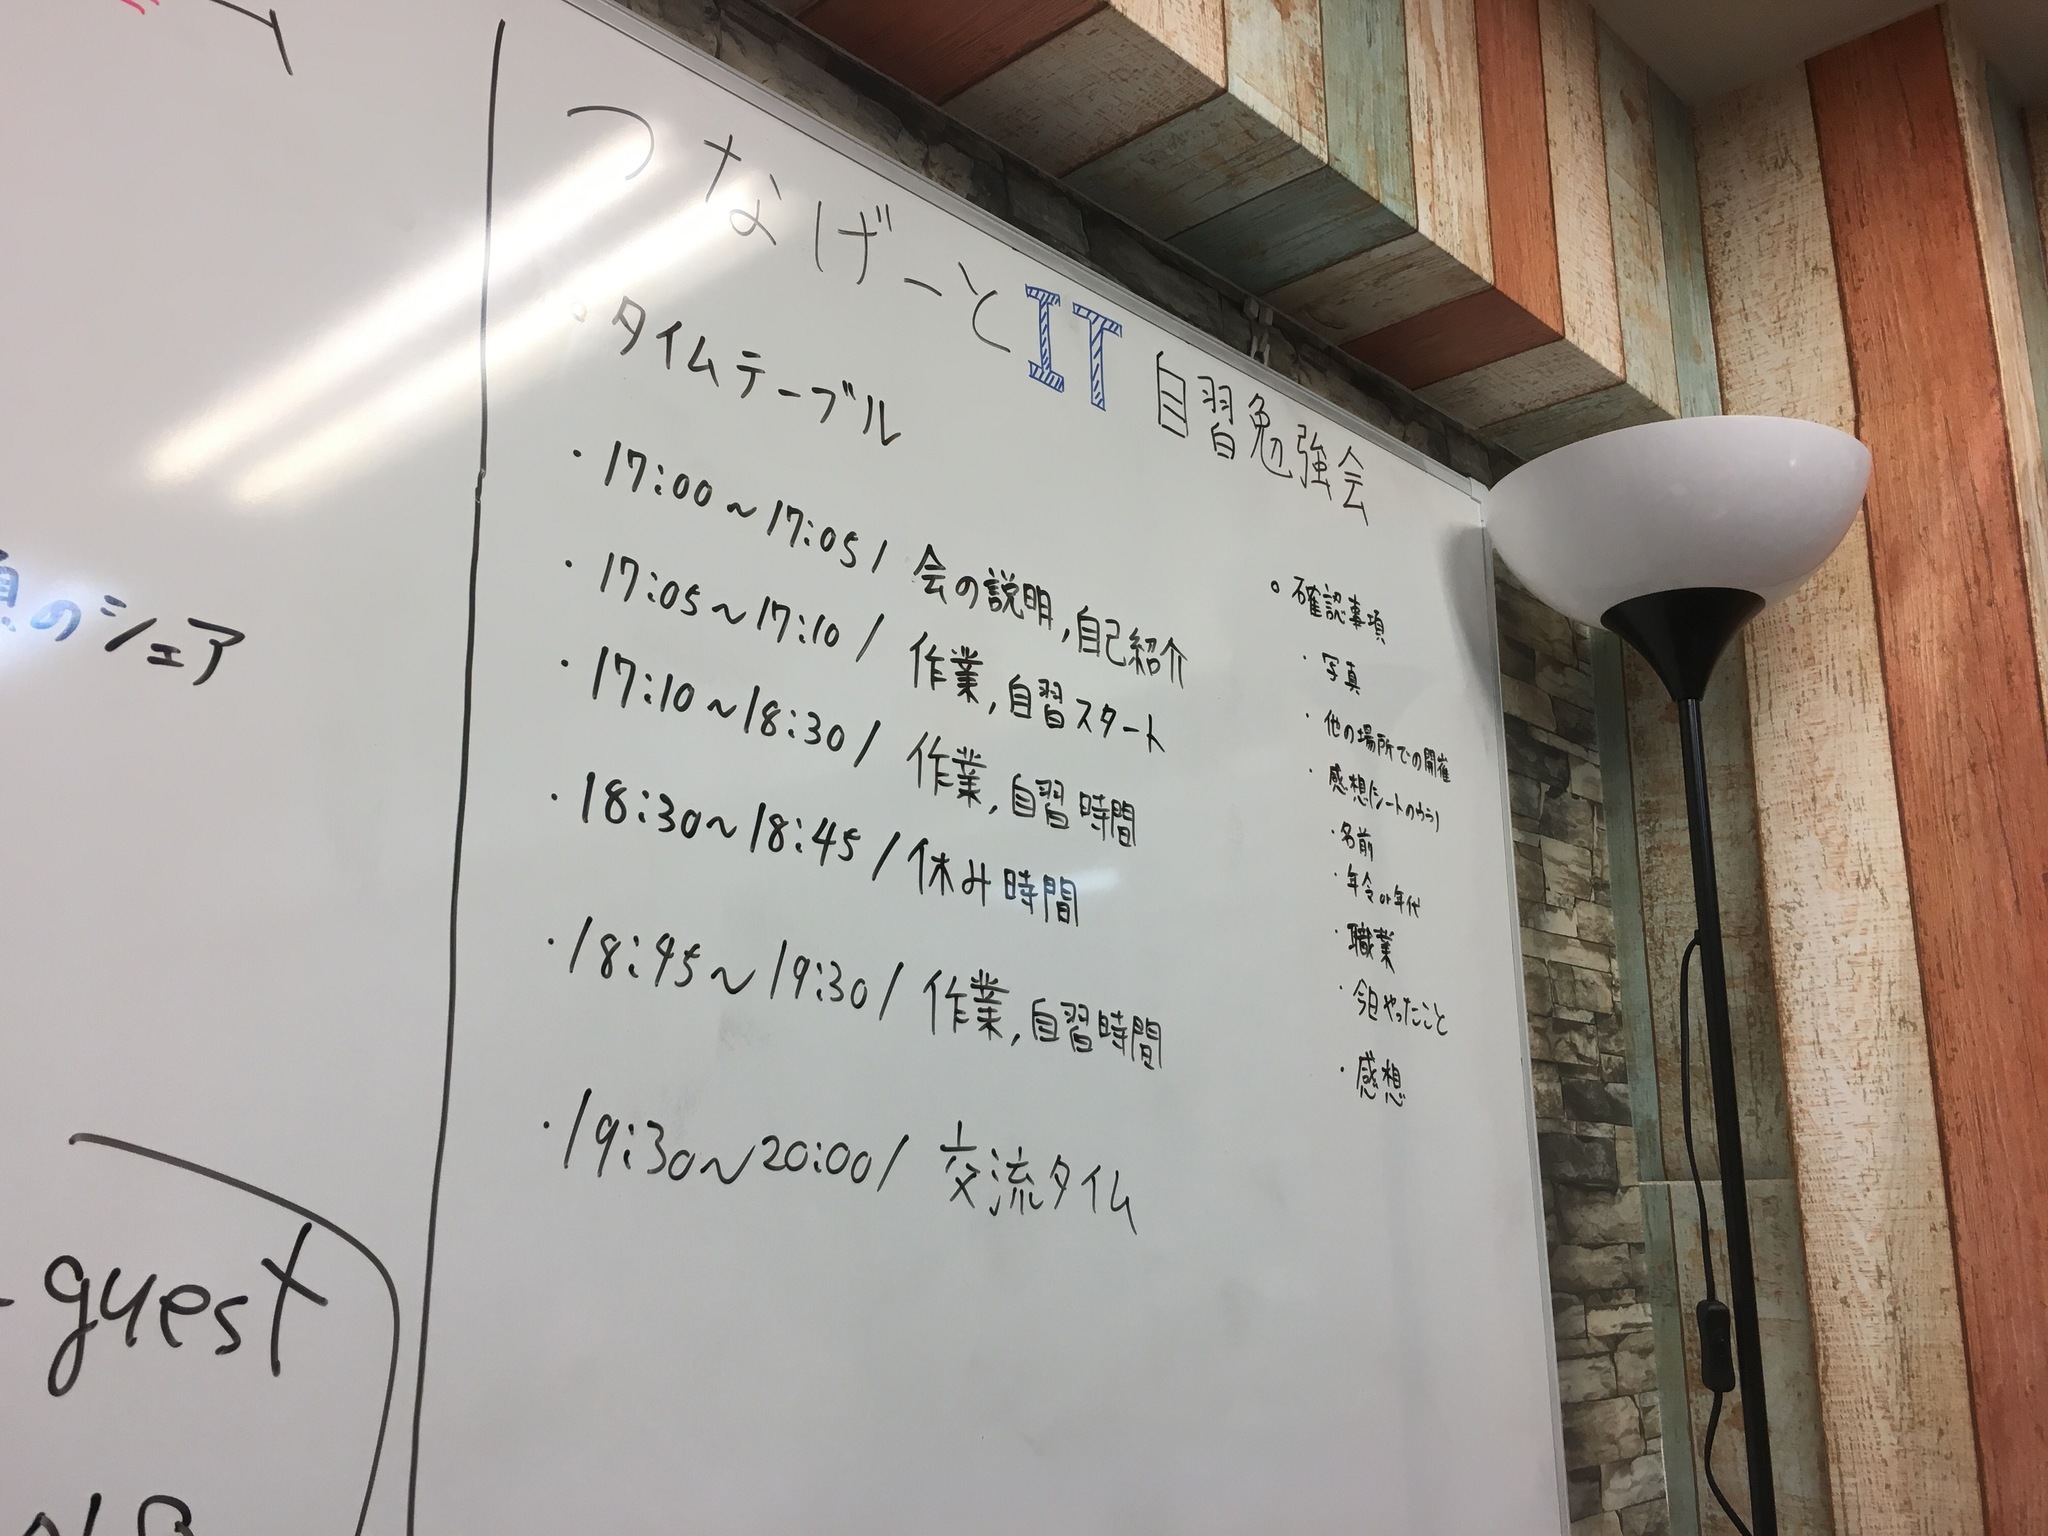 のシェア
guest
つなげーとIT自習勉強会
○タイムテーブル
・17:00～17:05/会の説明,自己紹介
・17:05～17:10/作業,自習スタート
・17:10～18:30/作業,自習時間
・18:30～18:45/休み時間
・18:45～19:30/作業,自習時間
・19:30～20:00/交流タイム
○確認事項
・写真
・他の場所での開催
・感想(シートのウラ)
・名前
・年令or年代
・職業
・今日やったこと
・感想